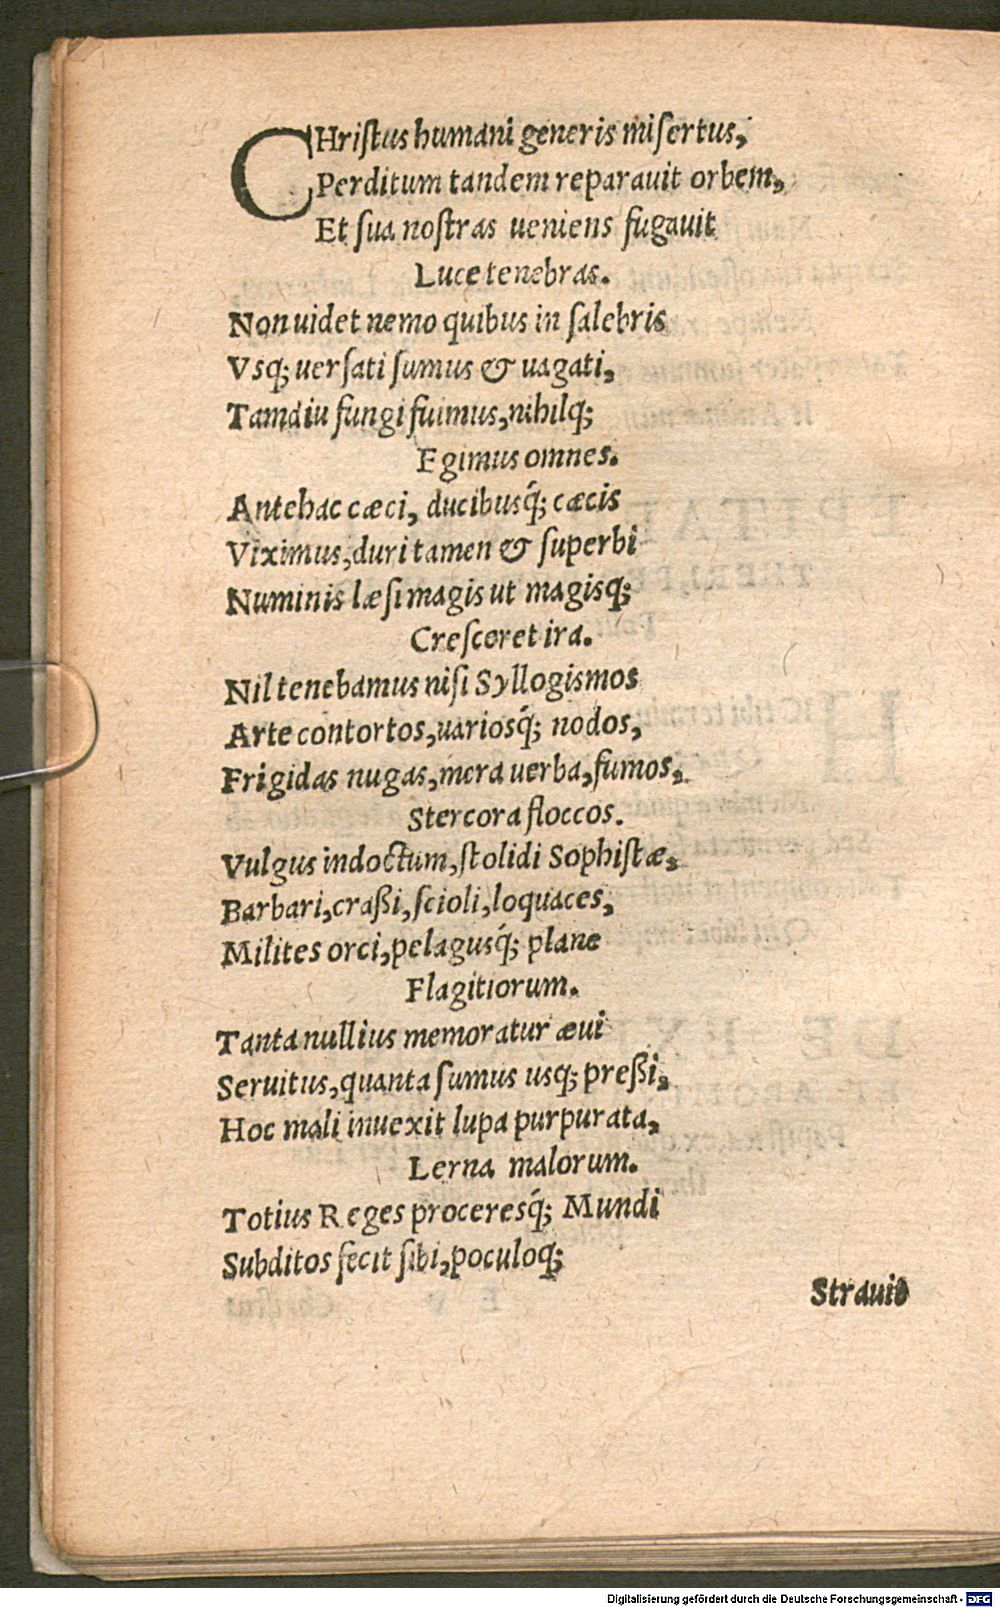 CHriſtus humani generis miſertus,
Perditum tandem reparauit orbem,
Et ſua noſtras ueniens fugauit
Luce tenebras.
Non uidet nemo quibus in ſalebris
Vsq; uerſati ſumus & uagati,
Tamdiu fungi fuimus, nihilq;
Egimus omnes.
Antehac cæci, ducibusq́; cæcis
Viximus, duri tamen & ſuperbi
Numinis læſi magis ut magisq;
Creſceret ira.
Nil tenebamus niſi Syllogismos
Arte contortos, uariosq́; nodos,
Frigidas nugas, mera uerba, fumos,
Stercora floccos.
Vulgus indoctum, ſtolidi Sophiſtæ,
Barbari, craßi, ſcioli, loquaces,
Milites orci, pelagusq́; plane
Flagitiorum.
Tanta nullius memoratur æui
Seruitus, quanta ſumus usq; preßi,
Hoc mali inuexit lupa purpurata,
Lerna malorum.
Totius Reges proceresq́; Mundi
Subditos fecit ſibi, poculoq;
Strauit
Digitalisierung gefördert durch die Deutsche Forschungsgemeinschaft - DFG